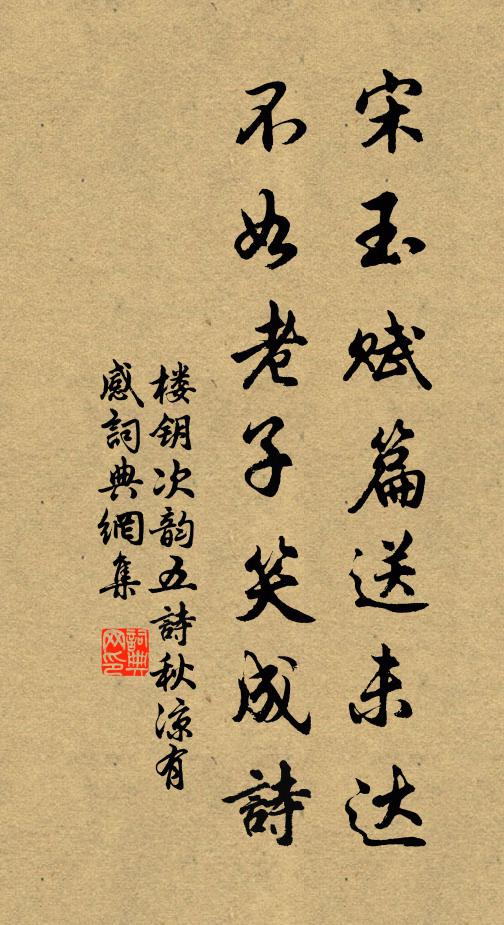 宋玉赋篇送未达
不如老子笑成詩
楼钥次韵五詩秋凉有
感詞典網集
詞典网印